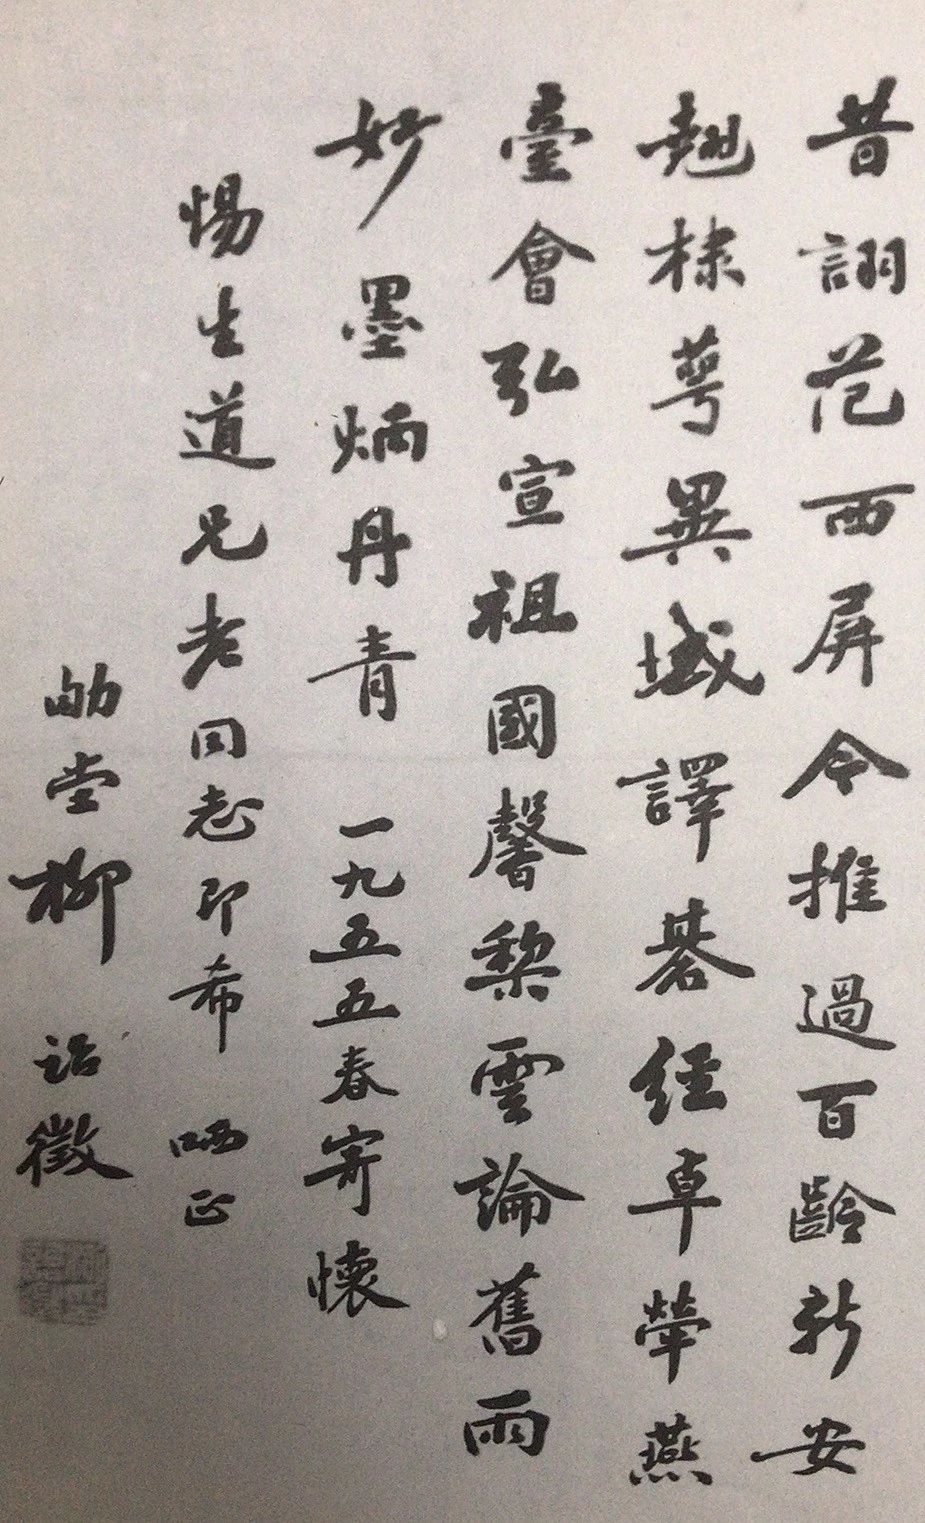 昔詡范西屏今推過百齡新安
翹棣萼異域譯碁經卓犖燕
臺會弘宣祖國馨梨雲論舊雨
妙墨炳丹青 一九五五春寄懷
惕生道兄老同志即希 哂正
劬堂柳詒徵